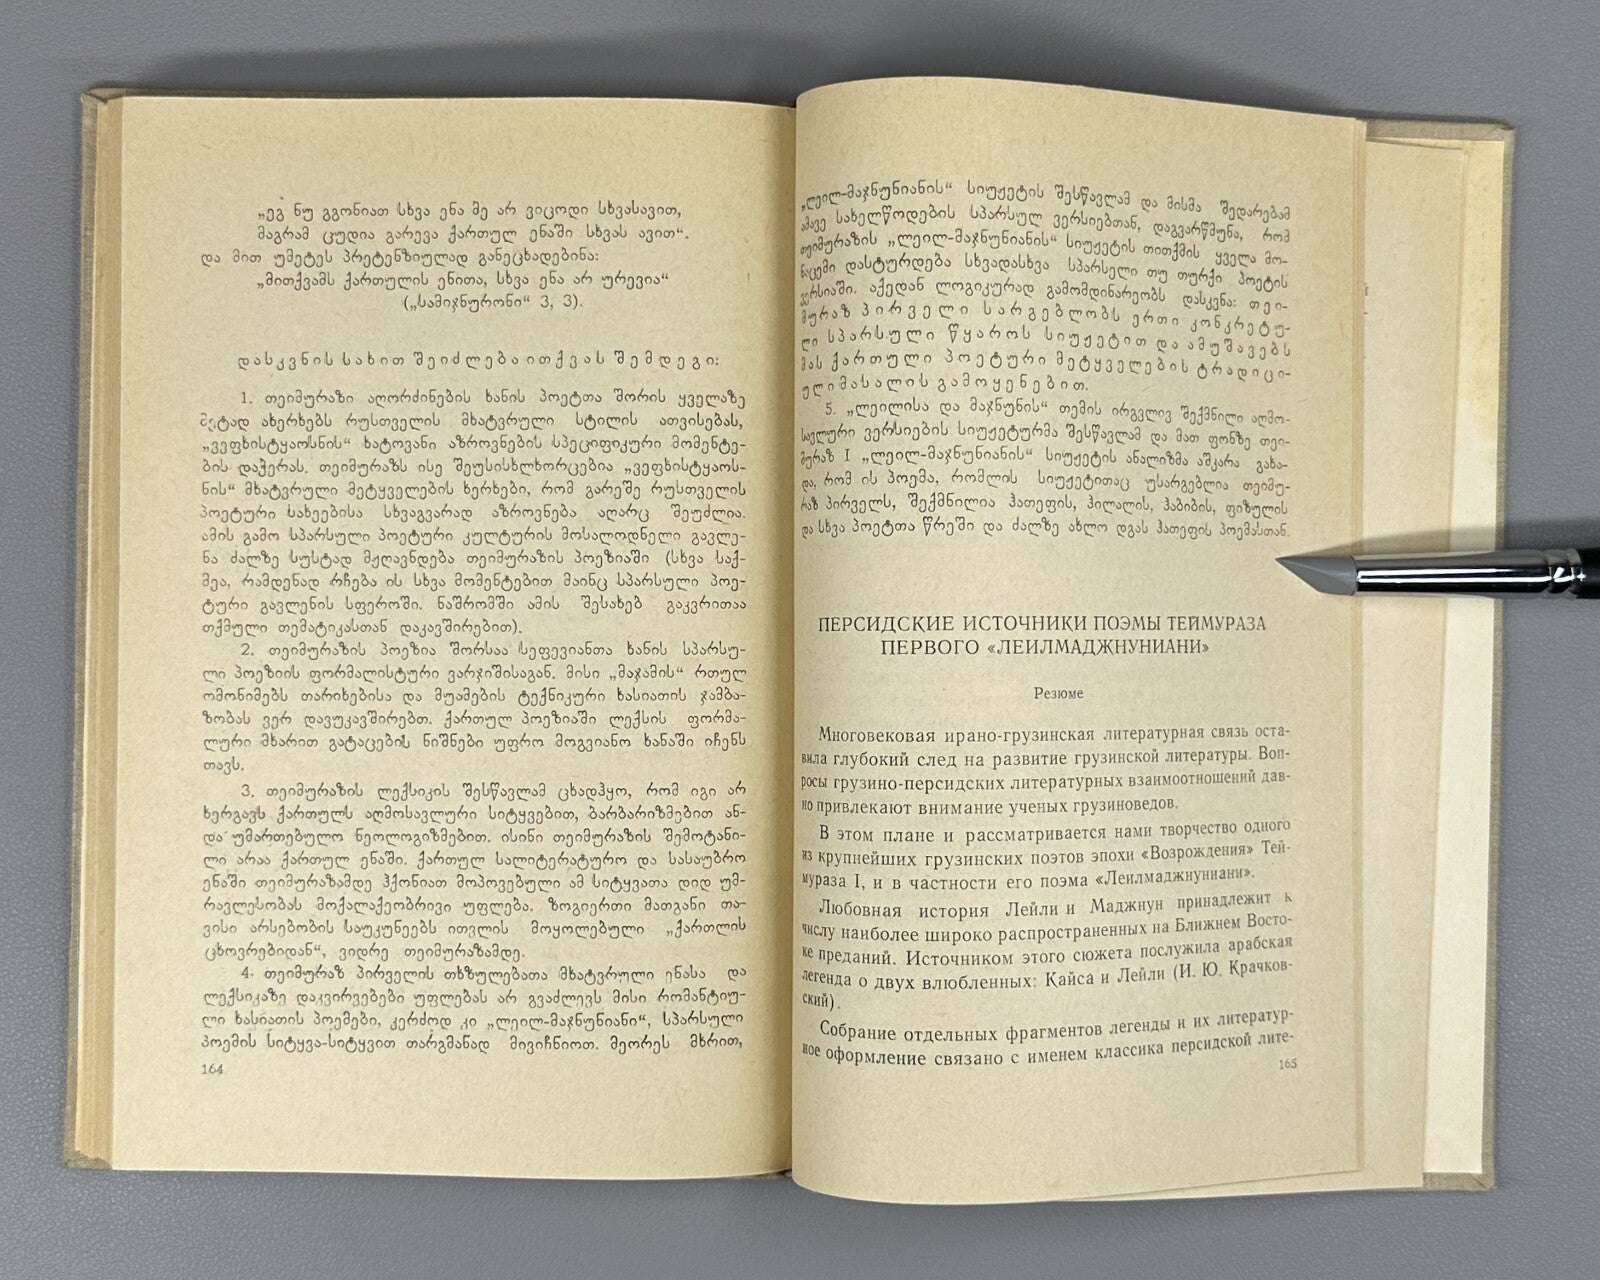 „ეგ ნუ გგონიათ სხვა ენა მე არ ვიცოდი სხვასავით,
მაგრამ ცუდია გარევა ქართულ ენაში სხვას ავით“.
და მით უმეტეს პრეტენზიულად განეცხადებინა:
„მითქვამს ქართულის ენითა, სხვა ენა არ ურევია“
(„სამიჯნურონი“ 3, 3).
დასკვნის სახით შეიძლება ითქვას შემდეგი:
1. თეიმურაზი აღორძინების ხანის პოეტთა შორის ყველაზე
მეტად ახერხებს რუსთველის მხატვრული სტილის ათვისებას,
„ვეფხისტყაოსნის“ ხატოვანი აზროვნების სპეციფიკური მომენტე-
ბის დაჭერას. თეიმურაზს ისე შეუსისხლხორცებია „ვეფხისტყაოს-
ნის“ მხატვრული მეტყველების ხერხები, რომ გარეშე რუსთველის
პოეტური სახეებისა სხვაგვარად აზროვნება აღარც შეუძლია.
ამის გამო სპარსული პოეტური კულტურის მოსალოდნელი გავლე-
ნა ძალზე სუსტად მჟღავნდება თეიმურაზის პოეზიაში (სხვა საქ-
მეა, რამდენად რჩება ის სხვა მომენტებით მაინც სპარსული პოე-
ტური გავლენის სფეროში. ნაშრომში ამის შესახებ გაკვრითაა
თქმული თემატიკასთან დაკავშირებით).
2. თეიმურაზის პოეზია შორსაა სეფევიანთა ხანის სპარსუ-
ლი პოეზიის ფორმალისტური ვარჯიშისაგან. მისი „მაჯამის“ რთულ
ომონიმებს თარიხებისა და მუამების ტექნიკური ხასიათის ჯამბა-
ზობას ვერ დავუკავშირებთ. ქართულ პოეზიაში ლექსის ფორმა-
ლური მხარით გატაცების ნიშნები უფრო მოგვიანო ხანაში იჩენს
თავს.
3. თეიმურაზის ლექსიკის შესწავლამ ცხადჰყო, რომ იგი არ
ხერგავს ქართულს აღმოსავლური სიტყვებით, ბარბარიზმებით ან-
და უმართებულო ნეოლოგიზმებით. ისინი თეიმურაზის შემოტანი-
ლი არაა ქართულ ენაში. ქართულ სალიტერატურო და სასაუბრო
ენაში თეიმურაზამდე ჰქონიათ მოპოვებული ამ სიტყვათა დიდ უმ-
რავლესობას მოქალაქეობრივი უფლება. ზოგიერთი მათგანი თა-
ვისი არსებობის საუკუნეებს ითვლის მოყოლებული „ქართლის
ცხოვრებიდან“, ვიდრე თეიმურაზამდე.
4. თეიმურაზ პირველის თხზულებათა მხატვრული ენასა და
ლექსიკაზე დაკვირვებები უფლებას არ გვაძლევს მისი რომანტიუ-
ლი ხასიათის პოემები, კერძოდ კი „ლეილ-მაჯნუნიანი“, სპარსული
პოემის სიტყვა-სიტყვით თარგმანად მივიჩნიოთ. მეორეს მხრით,
164
„ლეილ-მაჯნუნიანის“ სიუჟეტის შესწავლამ და მისმა შედარებამ
ამავე სახელწოდების სპარსულ ვერსიებთან, დაგვარწმუნა, რომ
თეიმურაზის „ლეილ-მაჯნუნიანის“ სიუჟეტის თითქმის ყველა მო-
ნაცემი დასტურდება სხვადასხვა სპარსელი თუ თურქი პოეტის
ვერსიაში. აქედან ლოგიკურად გამომდინარეობს დასკვნა: თეი-
მურაზ პირველი სარგებლობს ერთი კონკრეტუ-
ლი სპარსული წყაროს სიუჟეტით და ამუშავებს
მას ქართული პოეტური მეტყველების ტრადიცი-
ული მასალის გამოყენებით.
5. „ლეილისა და მაჯნუნის“ თემის ირგვლივ შექმნილი აღმო-
სავლური ვერსიების სიუჟეტურმა შესწავლამ და მათ ფონზე თეი-
მურაზ I „ლეილ-მაჯნუნიანის“ სიუჟეტის ანალიზმა აშკარა გახა-
და, რომ ის პოემა, რომლის სიუჟეტითაც უსარგებლია თეიმუ-
რაზ პირველს, შექმნილია ჰათეფის, ჰილალის, ჰაბიბის, ფიზულის
და სხვა პოეტთა წრეში და ძალზე ახლო დგას ჰათეფის პოემასთან.
ПЕРСИДСКИЕ ИСТОЧНИКИ ПОЭМЫ ТЕЙМУРАЗА
ПЕРВОГО «ЛЕИЛМАДЖНУНИАНИ»
Резюме
Многовековая ирано-грузинская литературная связь оста-
вила глубокий след на развитие грузинской литературы. Воп-
росы грузино-персидских литературных взаимоотношений дав-
но привлекают внимание ученых грузиноведов.
В этом плане и рассматривается нами творчество одного
из крупнейших грузинских поэтов эпохи «Возрождения» Тей-
мураза I, и в частности его поэма «Леилмаджнуниани».
Любовная история Лейли и Маджнун принадлежит к
числу наиболее широко распространенных на Ближнем Восто-
ке преданий. Источником этого сюжета послужила арабская
легенда о двух влюбленных: Кайса и Лейли (И. Ю. Крачков-
ский).
Собрание отдельных фрагментов легенды и их литератур-
ное оформление связано с именем классика персидской лите-
165